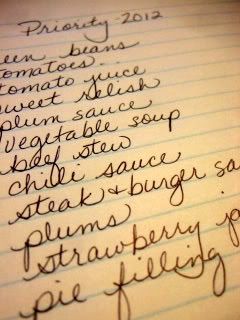 Priority-2012
een beans
tomatoes...
tomato juice
sweet relish
plum sauce
vegetable soup
beef stew
chili sauce
steak & burger sa
plums
strawberry
pie filling